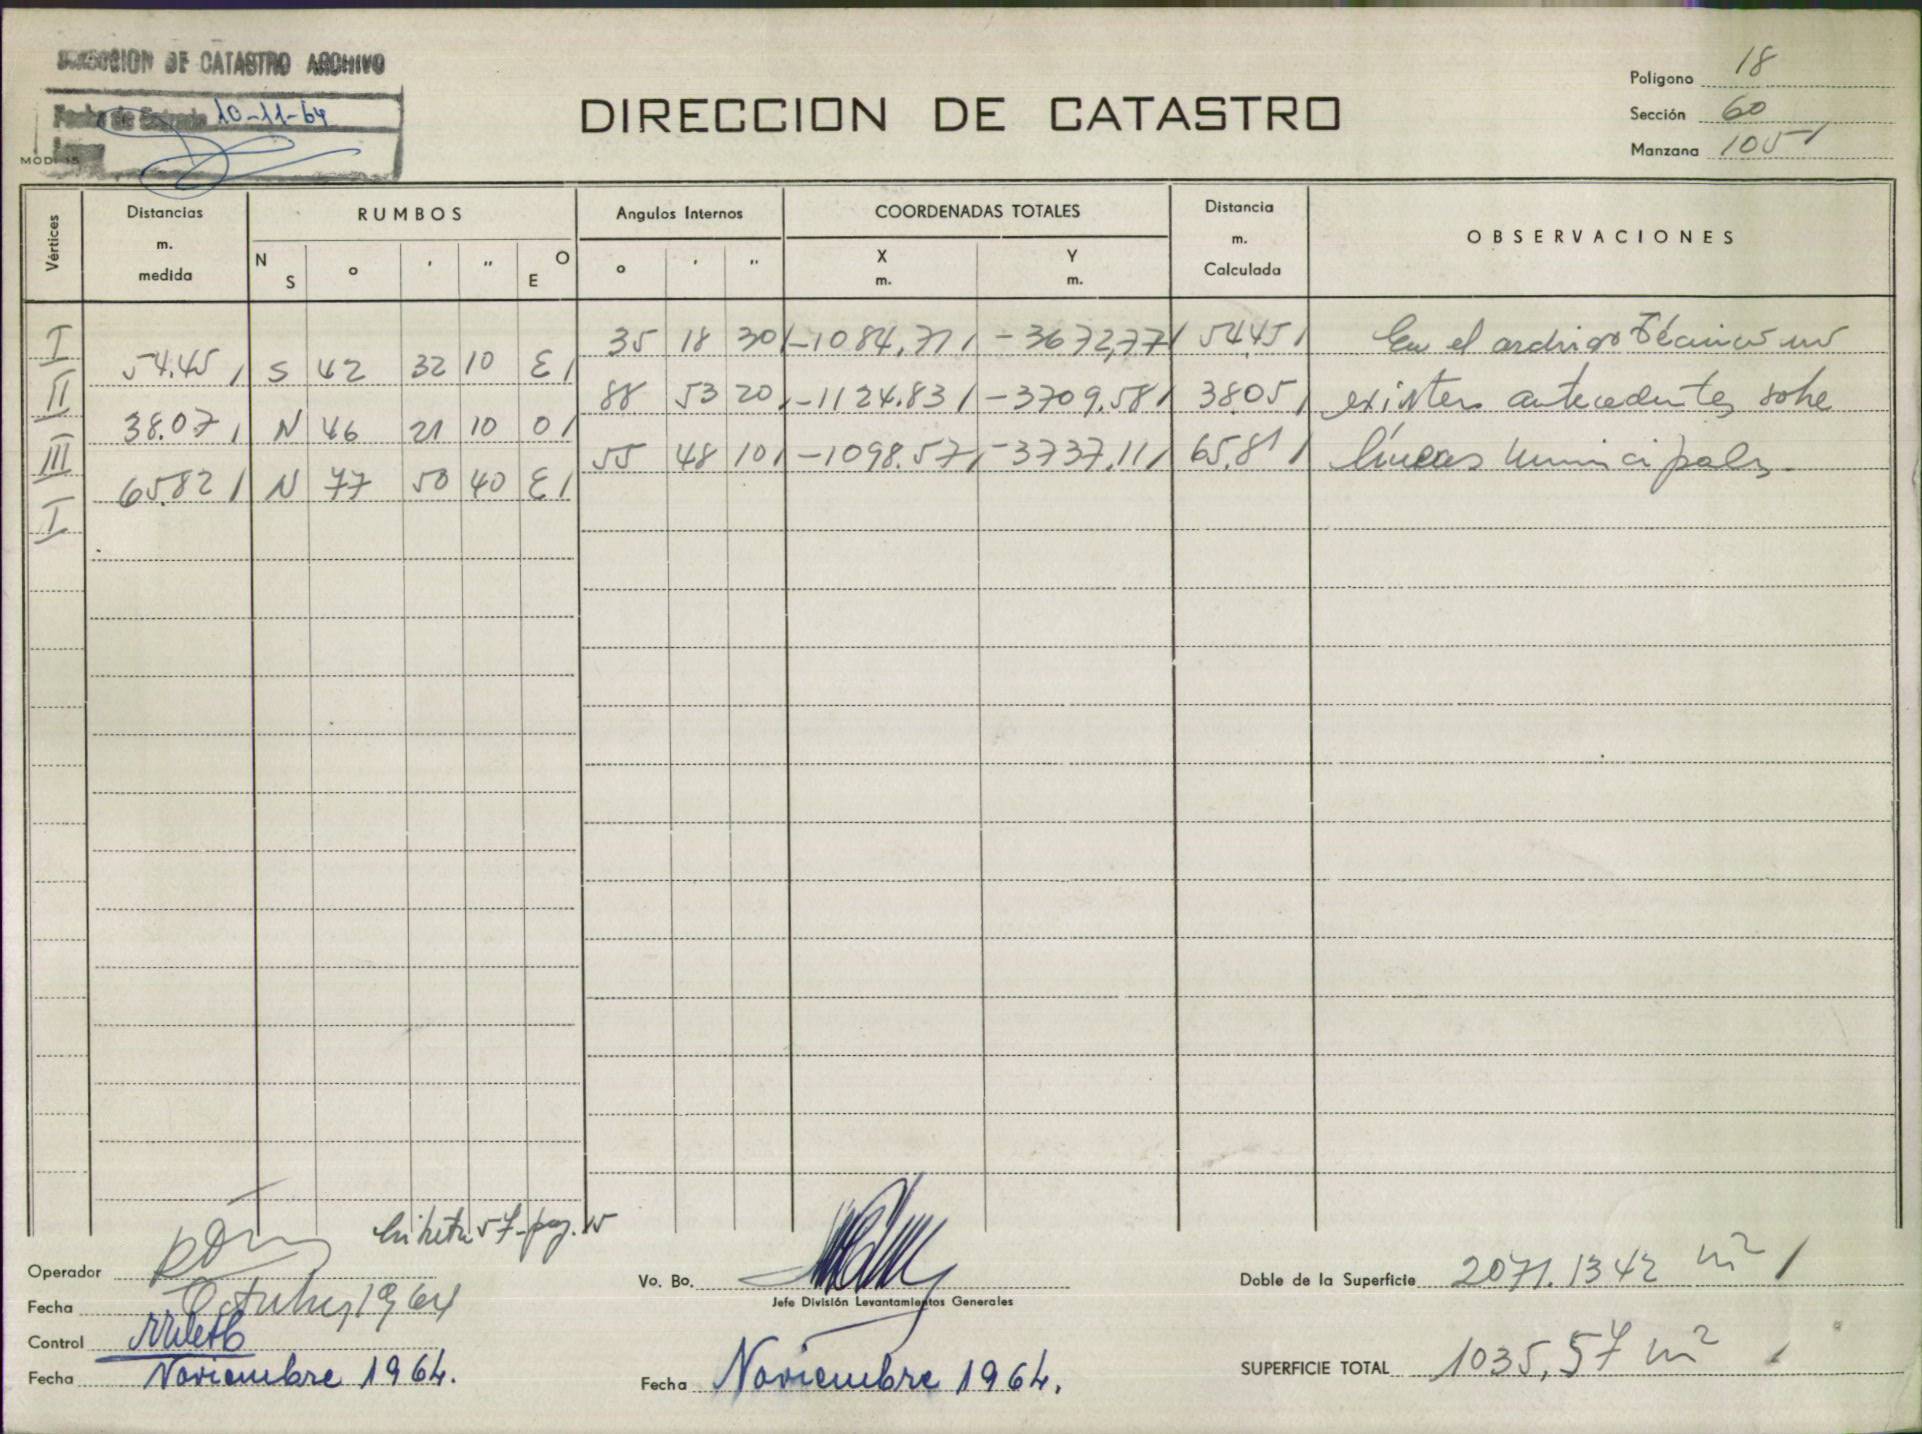 DIRECCION DE CATASTRO ARCHIVO
Fecha de Entrada 10-11-64
MOD. 15
DIRECCION DE CATASTRO
Polígono 18
Sección 60
Manzana 105
Vértices
Distancias
m.
medida
RUMBOS
N S ° ' " O E
Angulos Internos
° ' "
COORDENADAS TOTALES
X
m.
Y
m.
Distancia
m.
Calculada
OBSERVACIONES
I 35 18 30 -1084,71 -3672,77 54.45 En el archivo Técnico no
54.45 S 42 32 10 E
II 88 53 20 -1124.83 -3709.58 38.05 existen antecedentes sobre
38.07 N 46 21 10 O
III 55 48 10 -1098.57 -3737.11 65.81 líneas municipales.
65.82 N 77 50 40 E
I
Libreta 57-pag. 15
Operador
Fecha Octubre, 1964
Control
Fecha Noviembre 1964.
Vo. Bo.
Jefe División Levantamientos Generales
Fecha Noviembre 1964.
Doble de la Superficie 2071.1342 m²
SUPERFICIE TOTAL 1035,57 m²